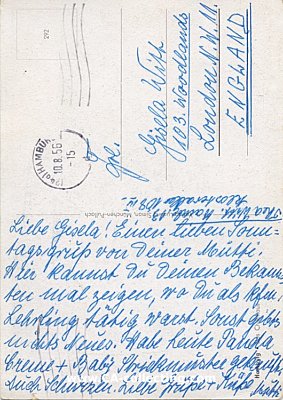 292
(24a) HAMBURG
10.8.56
-15
Frl.
Gisela Witt
183. Woodlands
London N.W. 11.
ENGLAND
Simon, München-Pullach
Liebe Gisela! Einen lieben Sonn-
tagsgruß von Deiner Mutti.
Hier kannst Du Deinen Bekann-
ten mal zeigen, wo Du als kfm.
Lehrling tätig warst. Sonst gibts
nichts Neues. Habe heute
Creme + Baby Strickmuster gekauft.
Auch Schwizen. Liebe Grüße + Küße
Mutti